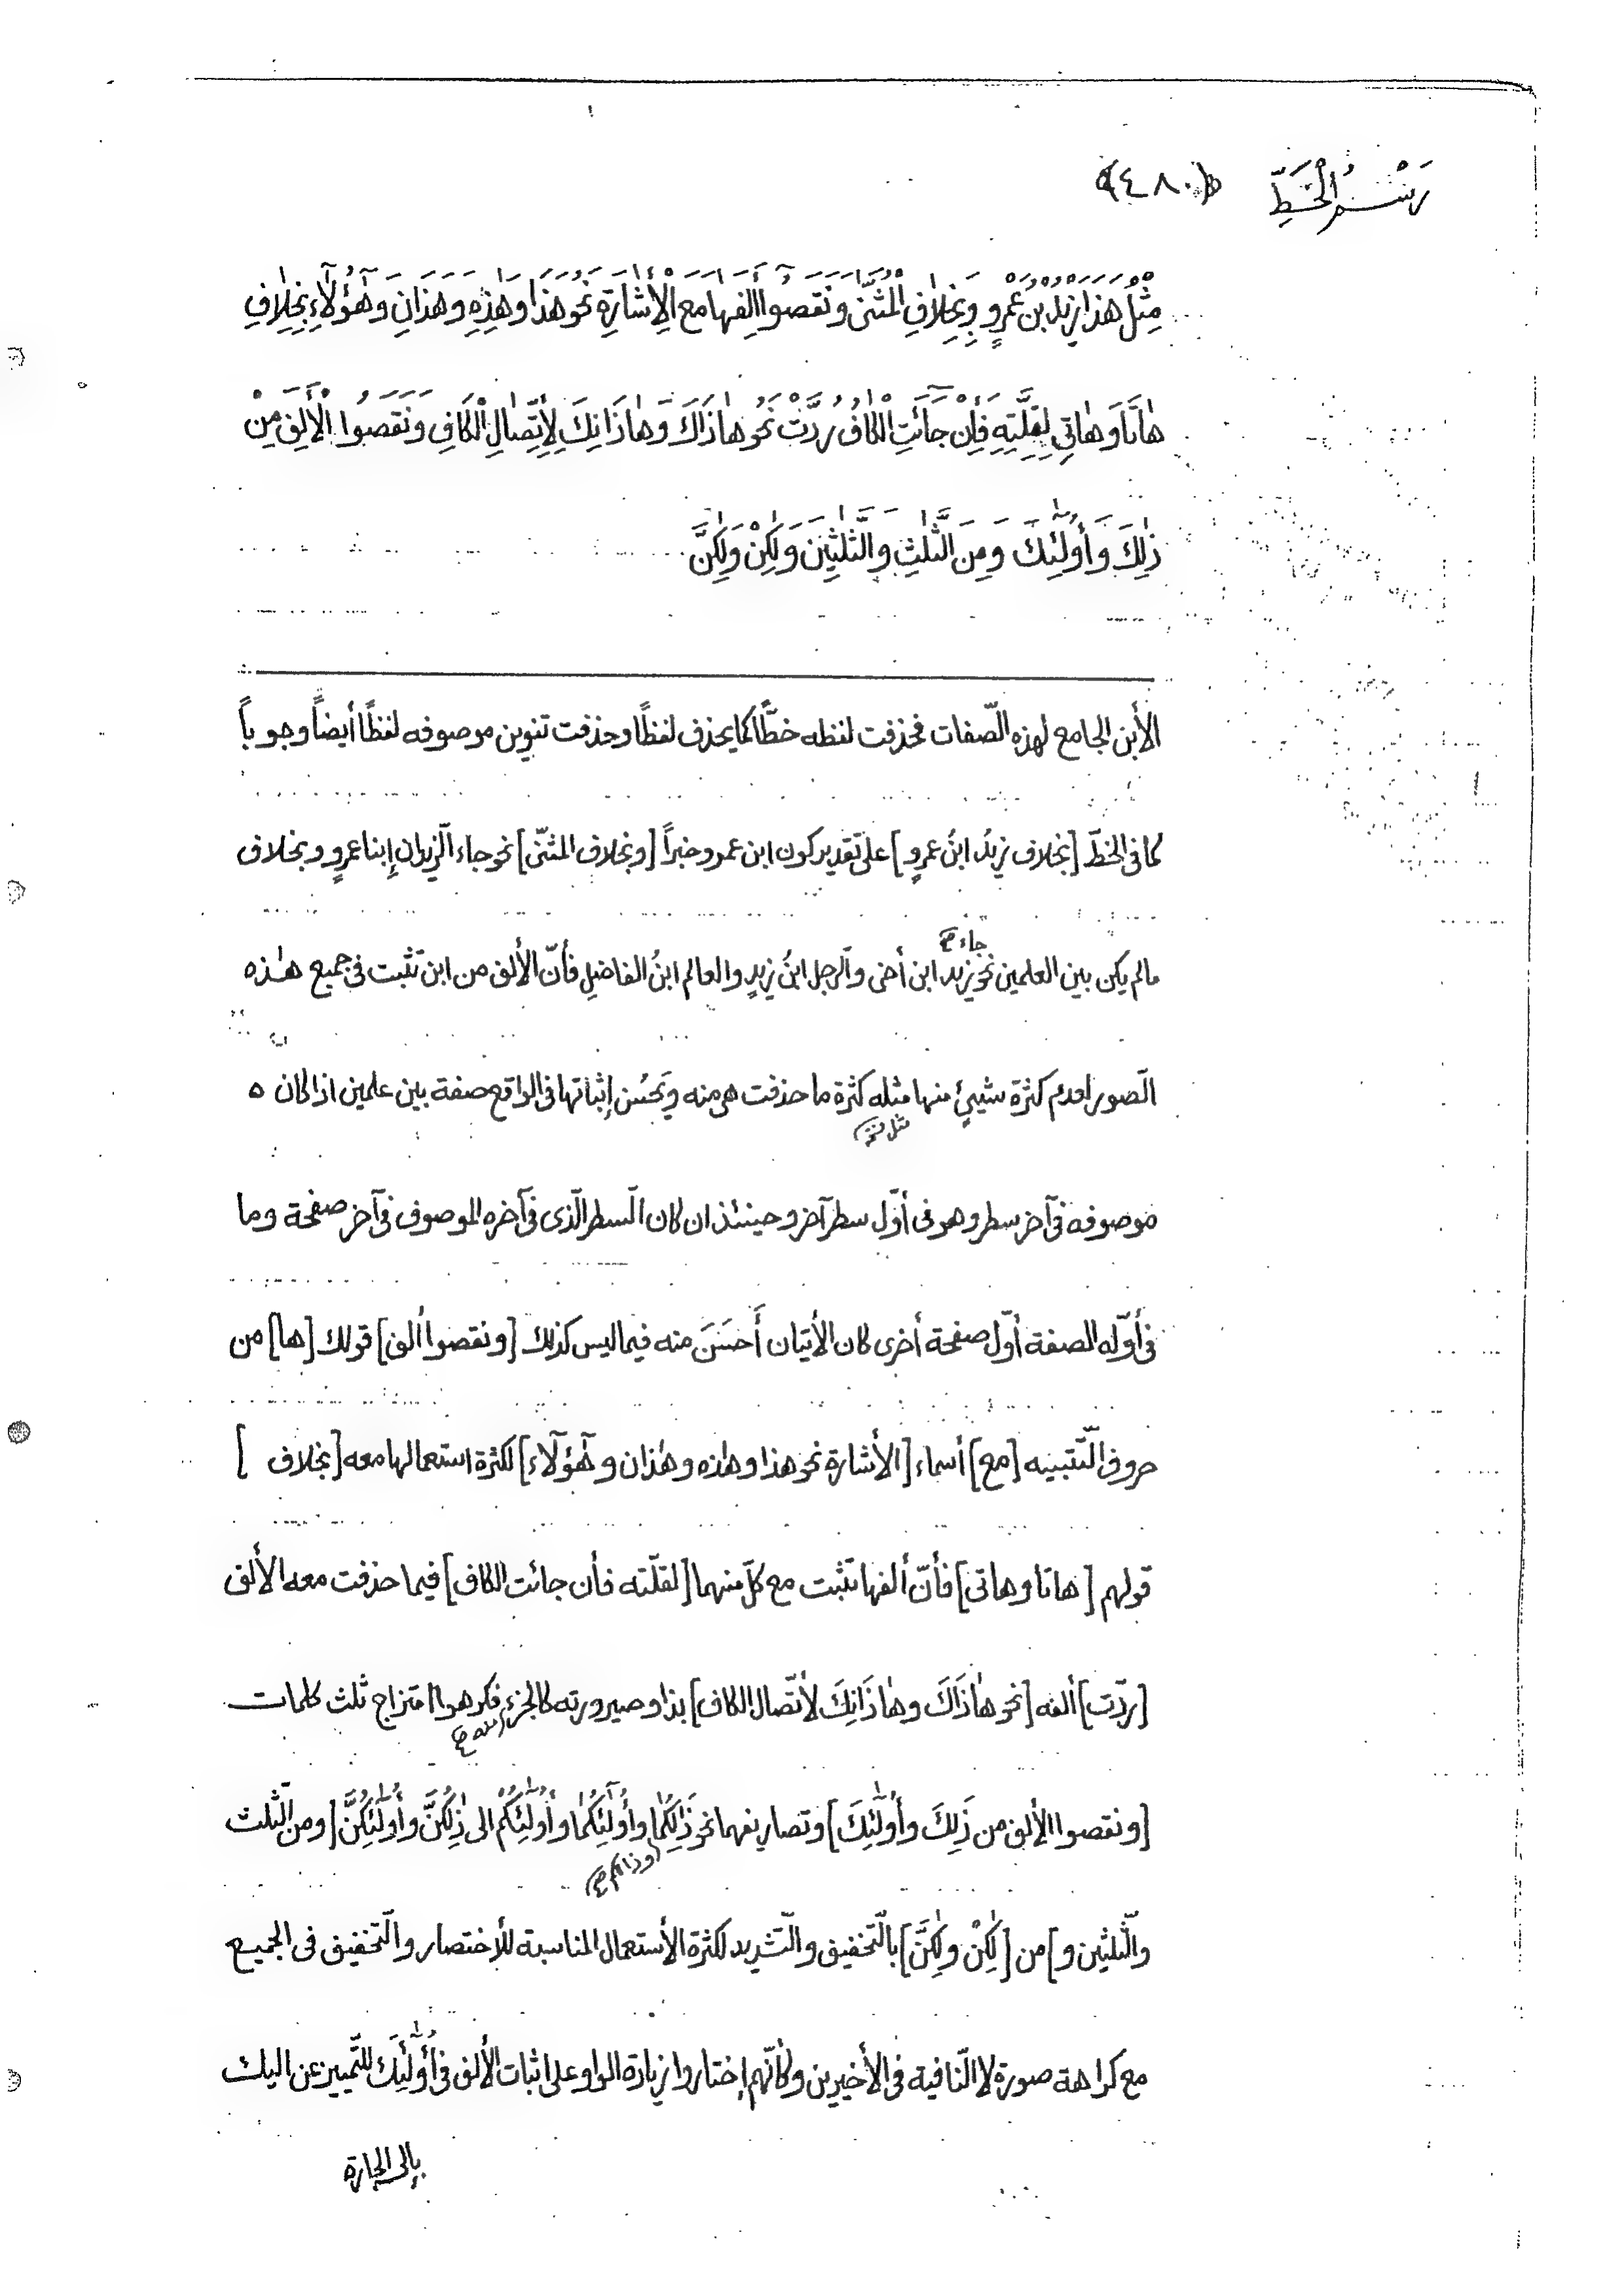 رَسْمُ الْخَطِّ ﴿٤٨٠﴾
مِثْلُ هٰذا زَيْدُ بْنُ عَمْرٍو وَبِخِلافِ الْمُثَنّىٰ وَنَقَصُوا أَلِفَ هٰا مَعَ الْأِشٰارَةِ نَحْوُ هٰذَا وَهٰذِهِ وَهٰذَانِ وَهٰؤُلآءِ بِخِلافِ
هٰاتَا وَهٰاتِي لِقِلَّتِهِ فَأِنْ جَائَتِ الْكٰافُ رُدَّتْ نَحْوُ هٰاذَاكَ وَهٰاذَانِكَ لِأِتِّصٰالِ الْكَافِ وَنَقَصُوا الْأَلِفَ مِنْ
ذٰلِكَ وَأُولٰئِكَ وَمِنَ الثَّلٰثِ وَالثَّلٰثِينَ وَلٰكِنْ وَلٰكِنَّ
الأبن الجامع لهذه الصّفات فحذفت لفظه خطًّا كما يحذف لفظًا وحذفت تنوين موصوفه لفظًا أيضاً وجوباً
كما فى الخطّ [بخلاف زيدٌ ابنُ عمرٍو] على تقدير كون ابن عمرو خبراً [وبخلاف المثنّى] نحو جاء الزيدان إبنا عمرٍو وبخلاف
مالم يكن بين العلمين نحو جاء زيد ابن أخى والرجل ابنُ زيدٍ والعالم ابنُ الفاضلِ فأنّ الألف من ابن تثبت فى جميع هٰذه
الصّور لعدم كثرة شيىءٍ منها مثله كثرة ما حذفت هى منه ويَحسُن إثباتها فى الواقع صفة بين علمين اذا كان ٥
مثل
موصوفه فى آخر سطر وهو فى أوّل سطر آخر وحينئذ ان كان السّطر الّذى فى آخره الموصوف فى آخر صفحة وما
فى أوّله الصفة أوّل صفحة أخرى كان الأتيان أَحسَنَ منه فيما ليس كذلك [ونقصوا ألف] قولك [ها] من
حروف التّنبيه [مع] أسماء [الأشارة نحو هذا وهٰذه وهٰذان وهٰؤلآء] لكثرة استعمالها معه [بخلاف]
قولهم [هاتا وهاتى] فأنّ ألفها تثبت مع كلّ منهما [لقلّته فأن جائت الكاف] فيما حذفت معه الألف
[ردّت] ألفه [نحو هٰاذَاكَ وهٰاذَانِكَ لأتّصال الكاف] بذا وصيرورته كالجزء فكرهوا امتزاج ثلث كلمات
[ونقصوا الألف من ذَلِكَ وأُولٰئِكَ] وتصاريفهما نحو ذَلِكُمٰا وأُولٰئِكُمٰا وأُولٰئِكُمْ الى ذٰلِكُنَّ وأُولٰئِكُنَّ [ومن الثّلث
والثّلثين و] من [لٰكِنْ ولٰكِنَّ] بالتّخفيف والتّشديد لكثرة الأستعمال المناسبة للأختصار والتّخفيف فى الجميع
مع كراهة صورة لا النّافية فى الأخيرين وكأنّهم إختاروا زيادة الواو على اثبات الألف فى أُولٰئِكَ للتّمييز عن اليك
بإلى الجارة